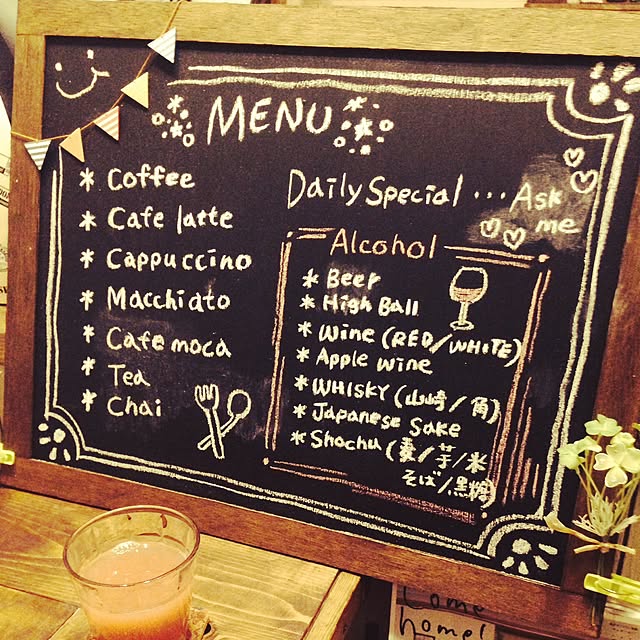 MENU
* Coffee
* Cafe latte
* Cappuccino
* Macchiato
* Cafe moca
* Tea
* Chai
Daily Special ・・・ Ask
me
Alcohol
* Beer
* High Ball
* Wine (RED/WHITE)
* Apple wine
* WHISKY (山崎/角)
* Japanese sake
* Shochu (麦/芋/米
そば/黒糖)
come
home!